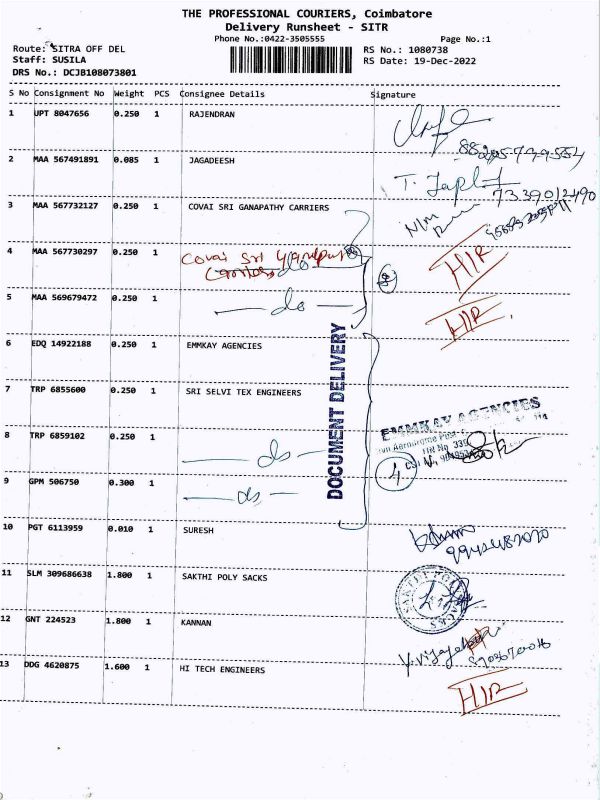 THE PROFESSIONAL COURIERS, Coimbatore
Delivery Runsheet - SITR
Phone No.:0422-3505555 Page No.:1
Route: SITRA OFF DEL RS No.: 1080738
Staff: SUSILA RS Date: 19-Dec-2022
DRS No.: DCJB108073801
S No Consignment No Weight PCS Consignee Details Signature
1 UPT 8047656 0.250 1 RAJENDRAN
2 MAA 567491891 0.085 1 JAGADEESH
3 MAA 567732127 0.250 1 COVAI SRI GANAPATHY CARRIERS
4 MAA 567730297 0.250 1 Covai Sri
H/R
5 MAA 569679472 0.250 1 — do —
H/R
6 EDQ 14922188 0.250 1 EMMKAY AGENCIES
DOCUMENT DELIVERY
7 TRP 6855600 0.250 1 SRI SELVI TEX ENGINEERS
EMMKAY AGENCIES
8 TRP 6859102 0.250 1 — do —
4
9 GPM 506750 0.300 1 — do —
10 PGT 6113959 0.010 1 SURESH
11 SLM 309686638 1.800 1 SAKTHI POLY SACKS
12 GNT 224523 1.800 1 KANNAN
13 DDG 4620875 1.600 1 HI TECH ENGINEERS
H/R